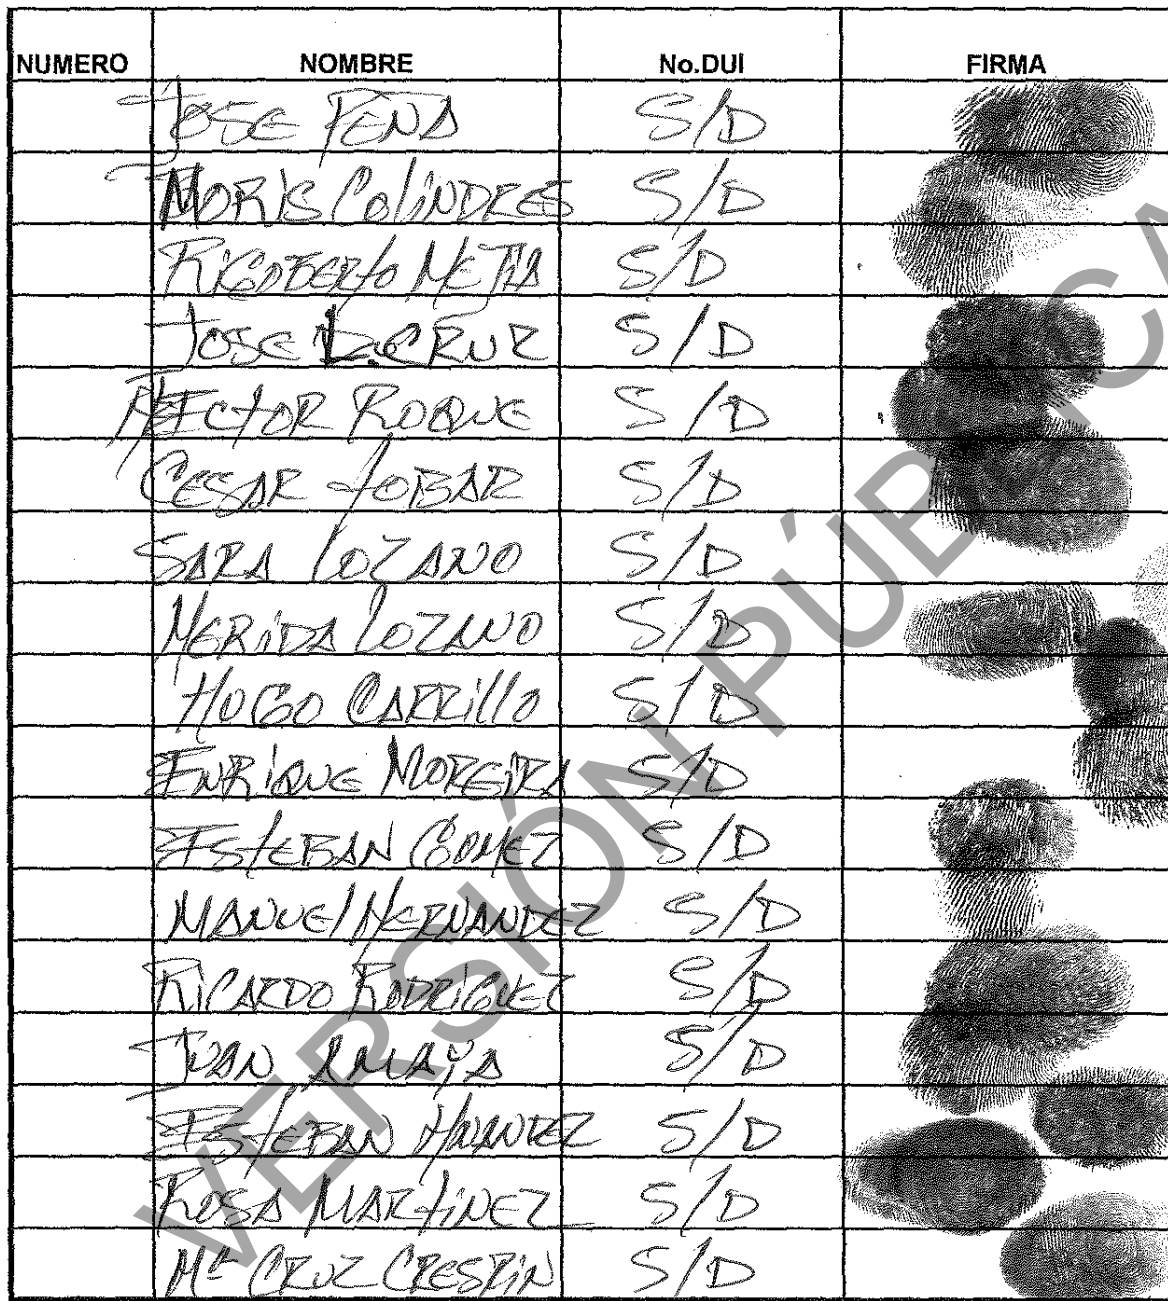 NUMERO NOMBRE No.DUI FIRMA
JOSE PEÑA S/D
MORIS COLINDRES S/D
RIGOBERTO MEJIA S/D
JOSE L. CRUZ S/D
HECTOR ROQUE S/D
CESAR TOBAR S/D
SARA LOZANO S/D
MERIDA LOZANO S/D
HUGO CARRILLO S/D
ENRIQUE MOREIRA S/D
ESTEBAN GOMEZ S/D
MANUEL HERNANDEZ S/D
RICARDO RODRIGUEZ S/D
JUAN AMAYA S/D
ESTEBAN S/D
ROSA MARTINEZ S/D
Mª CRUZ CRESPIN S/D
VERSIÓN PÚBLICA